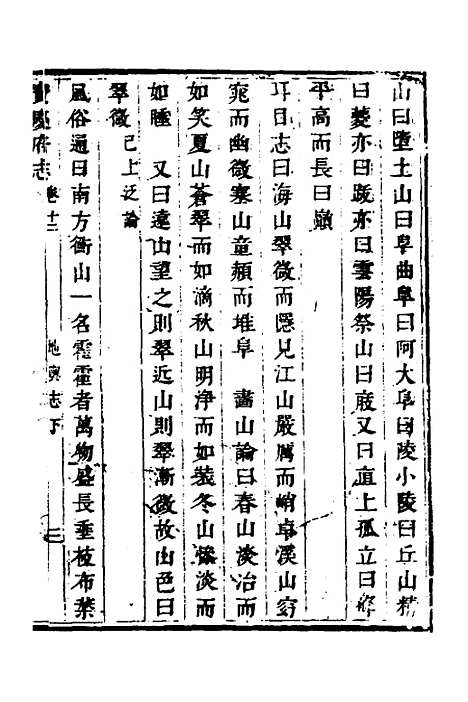 山曰墮土山曰阜曲阜曰阿大阜曰陵小陵曰丘山精
曰夔亦曰䟦亦曰雲陽祭山曰庪又曰直上孤立曰
平高而長曰巔
耳目志曰海山翠微而隱見江山嚴厲而峭卓溪山窈
窕而幽微寨山童頳而堆阜　畫山論曰春山淡冶而
如笑夏山蒼翠而如滴秋山明淨而如裝冬山慘淡而
如睡　又曰遠山望之則翠近山則翠漸微故山色曰
翠微已上泛論
風俗通曰南方衡山一名霍霍者萬物盛長垂枝布葉
寶慶府志　卷十二　地輿志下　三